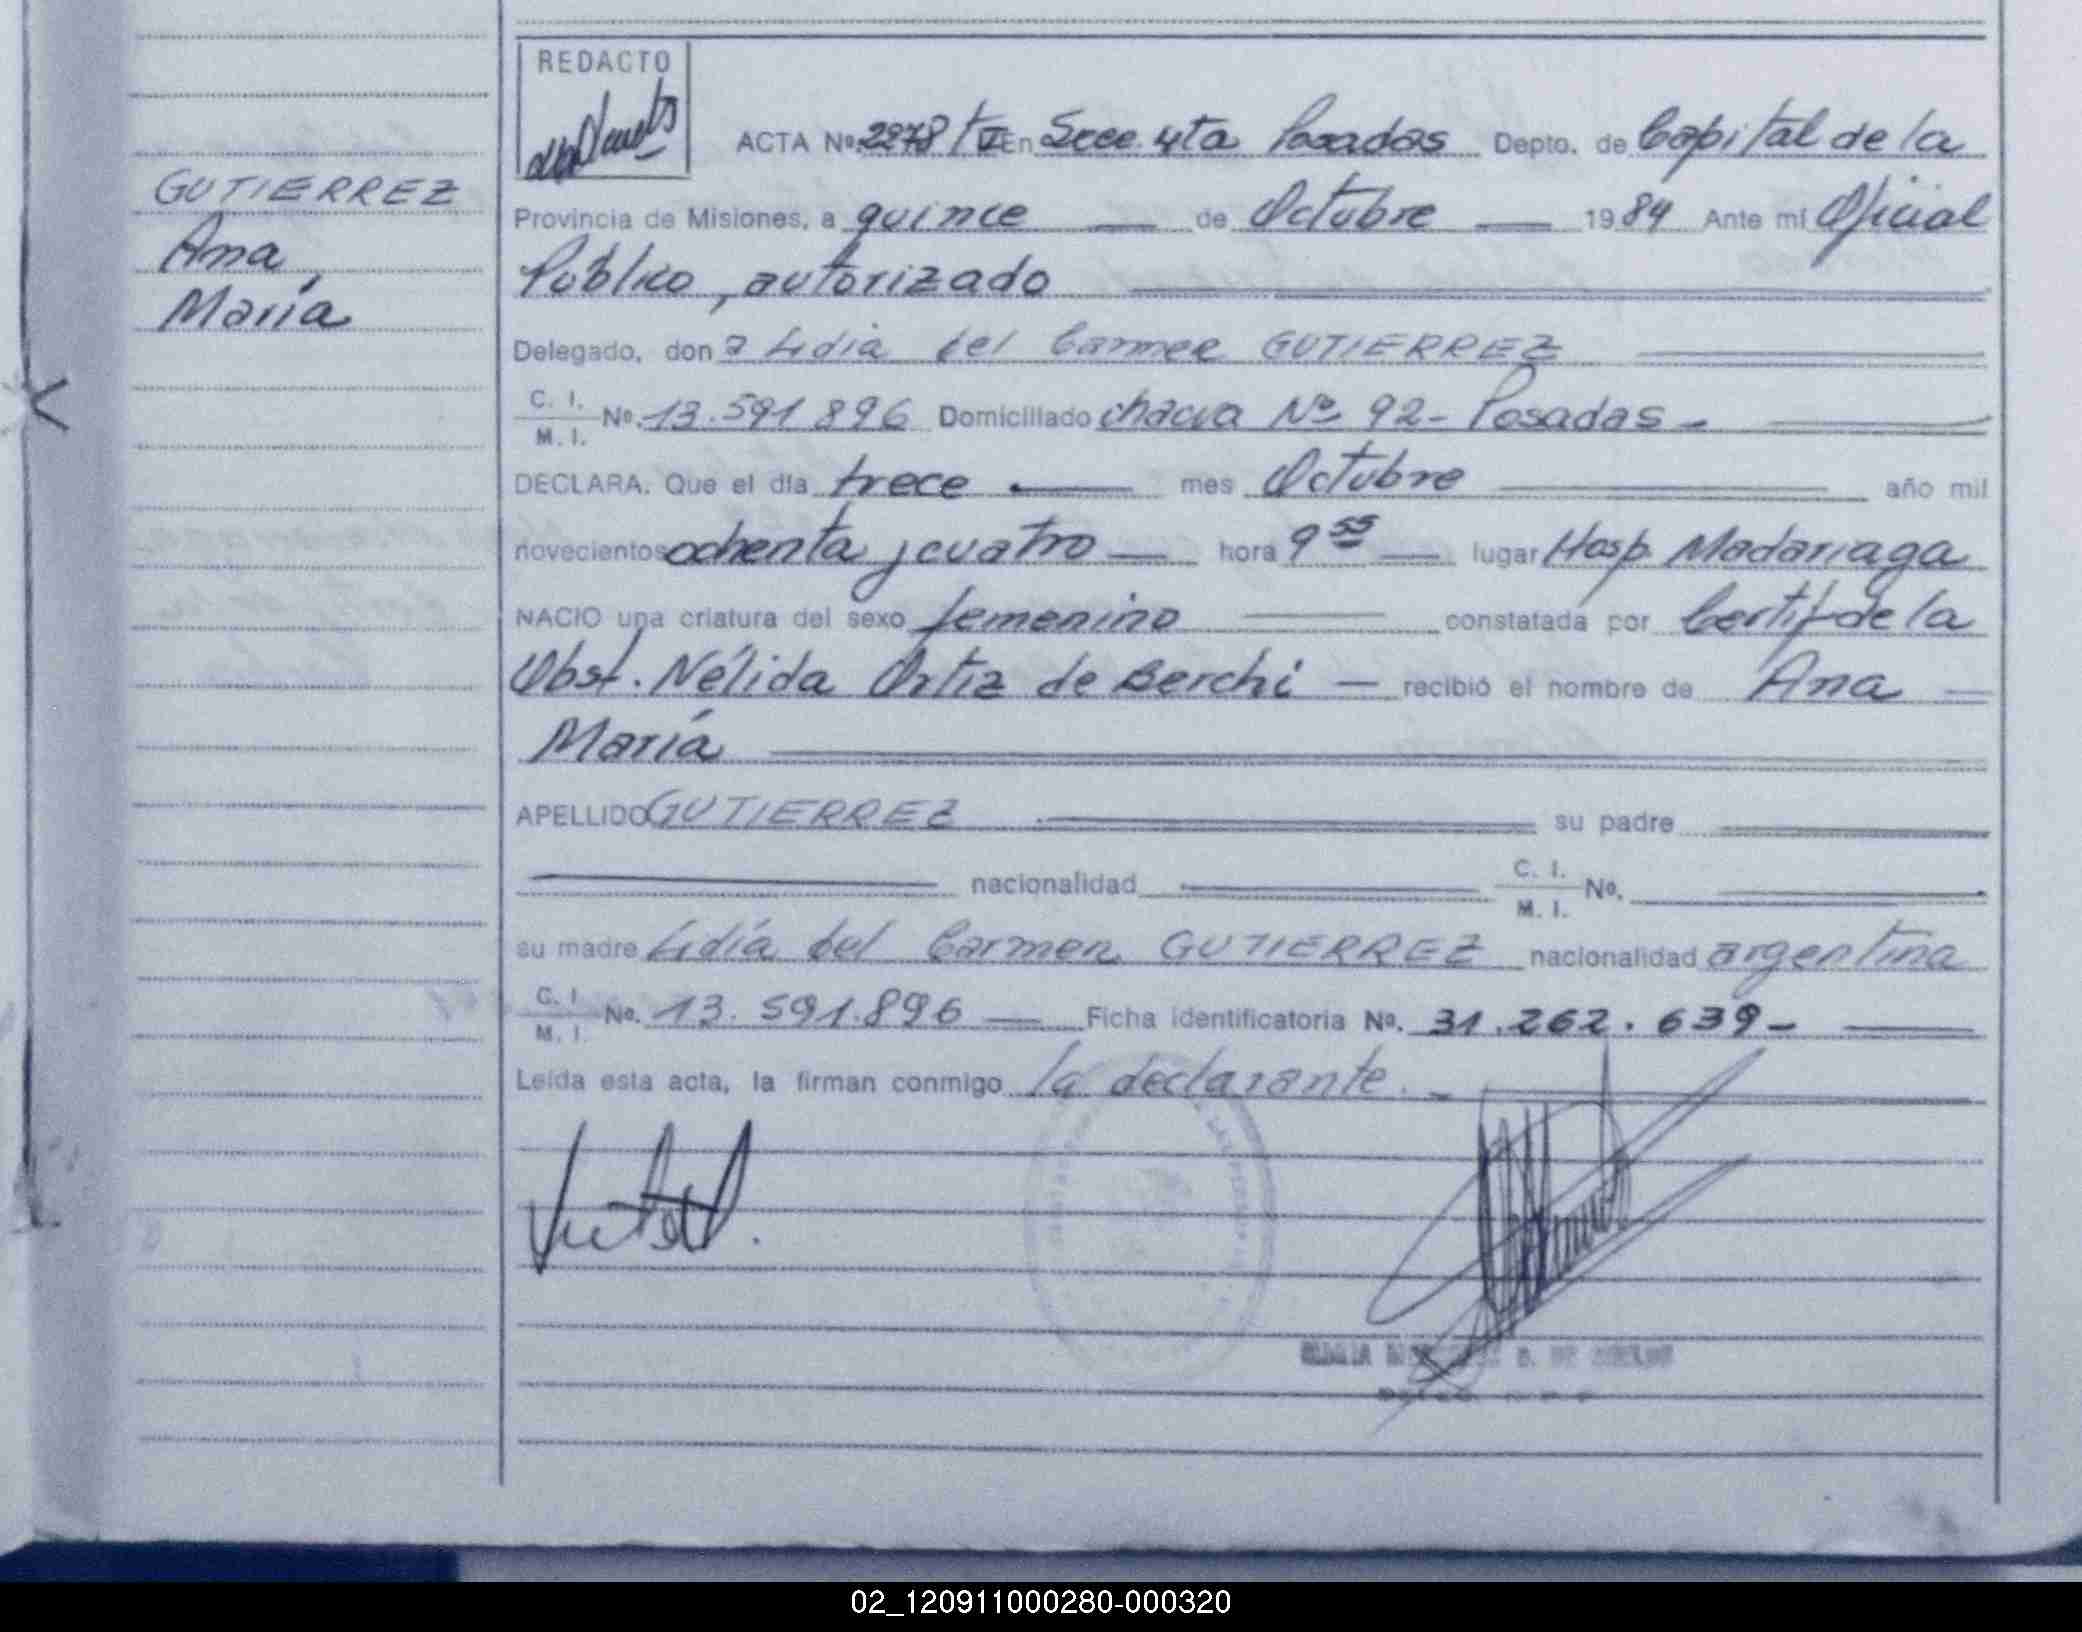 REDACTO
ACTA Nº 2278/V En Secc. 4ta Posadas Depto. de Capital de la
GUTIERREZ
Ana
María
Provincia de Misiones, a quince — de Octubre — 1984 Ante mí Oficial
Público, autorizado
Delegado, don a Lidia del Carmen GUTIERREZ
C. I.
M. I. Nº. 13.591.896 Domiciliado chacra Nº 92- Posadas -
DECLARA. Que el día trece — mes Octubre — año mil
novecientos ochenta y cuatro — hora 9 55 — lugar Hosp. Madariaga
NACIO una criatura del sexo femenino constatada por Certif. de la
Obst. Nélida Ortiz de Berchi — recibió el nombre de Ana —
María
APELLIDO GUTIERREZ su padre
nacionalidad C. I.
M. I. Nº.
su madre Lidia del Carmen GUTIERREZ nacionalidad argentina
C. I.
M. I. Nº. 13.591.896 — Ficha identificatoria Nº. 31.262.639-
Leída esta acta, la firman conmigo la declarante. -
02_120911000280-000320